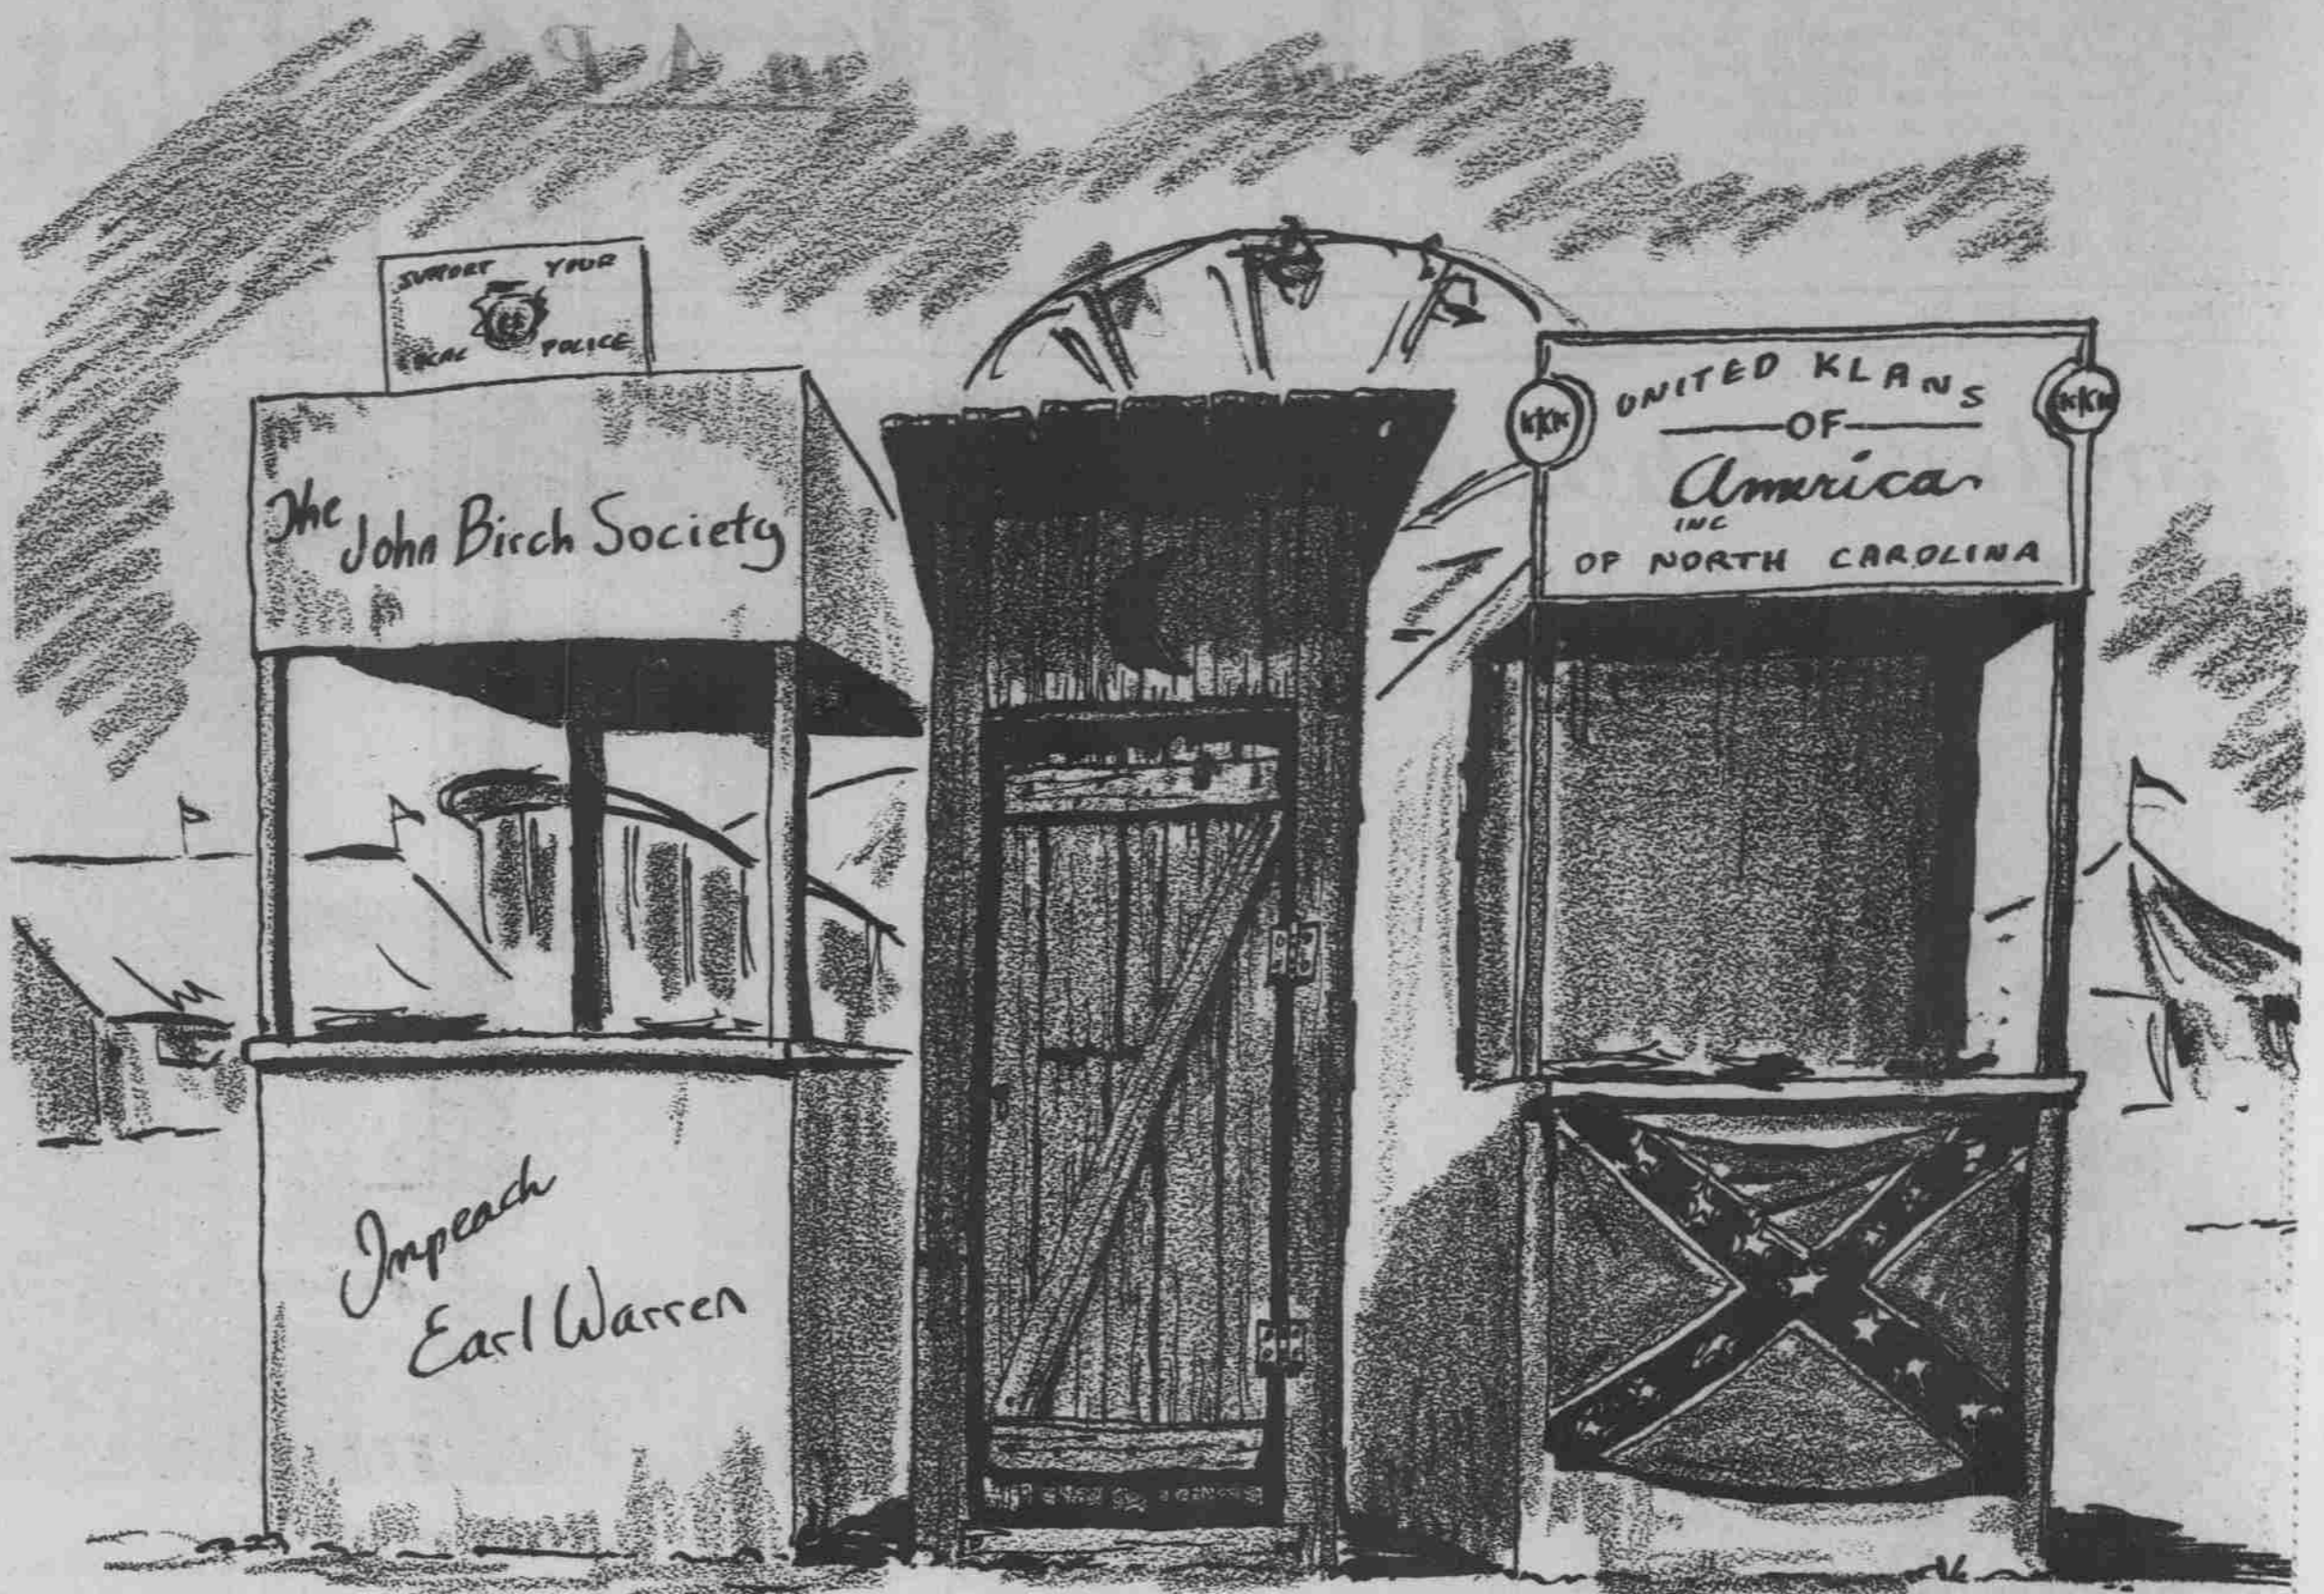 SUPPORT YOUR
LOCAL POLICE
The
John Birch Society
Impeach
Earl Warren
UNITED KLANS
OF
KKK
KKK
America
INC
OF NORTH CAROLINA